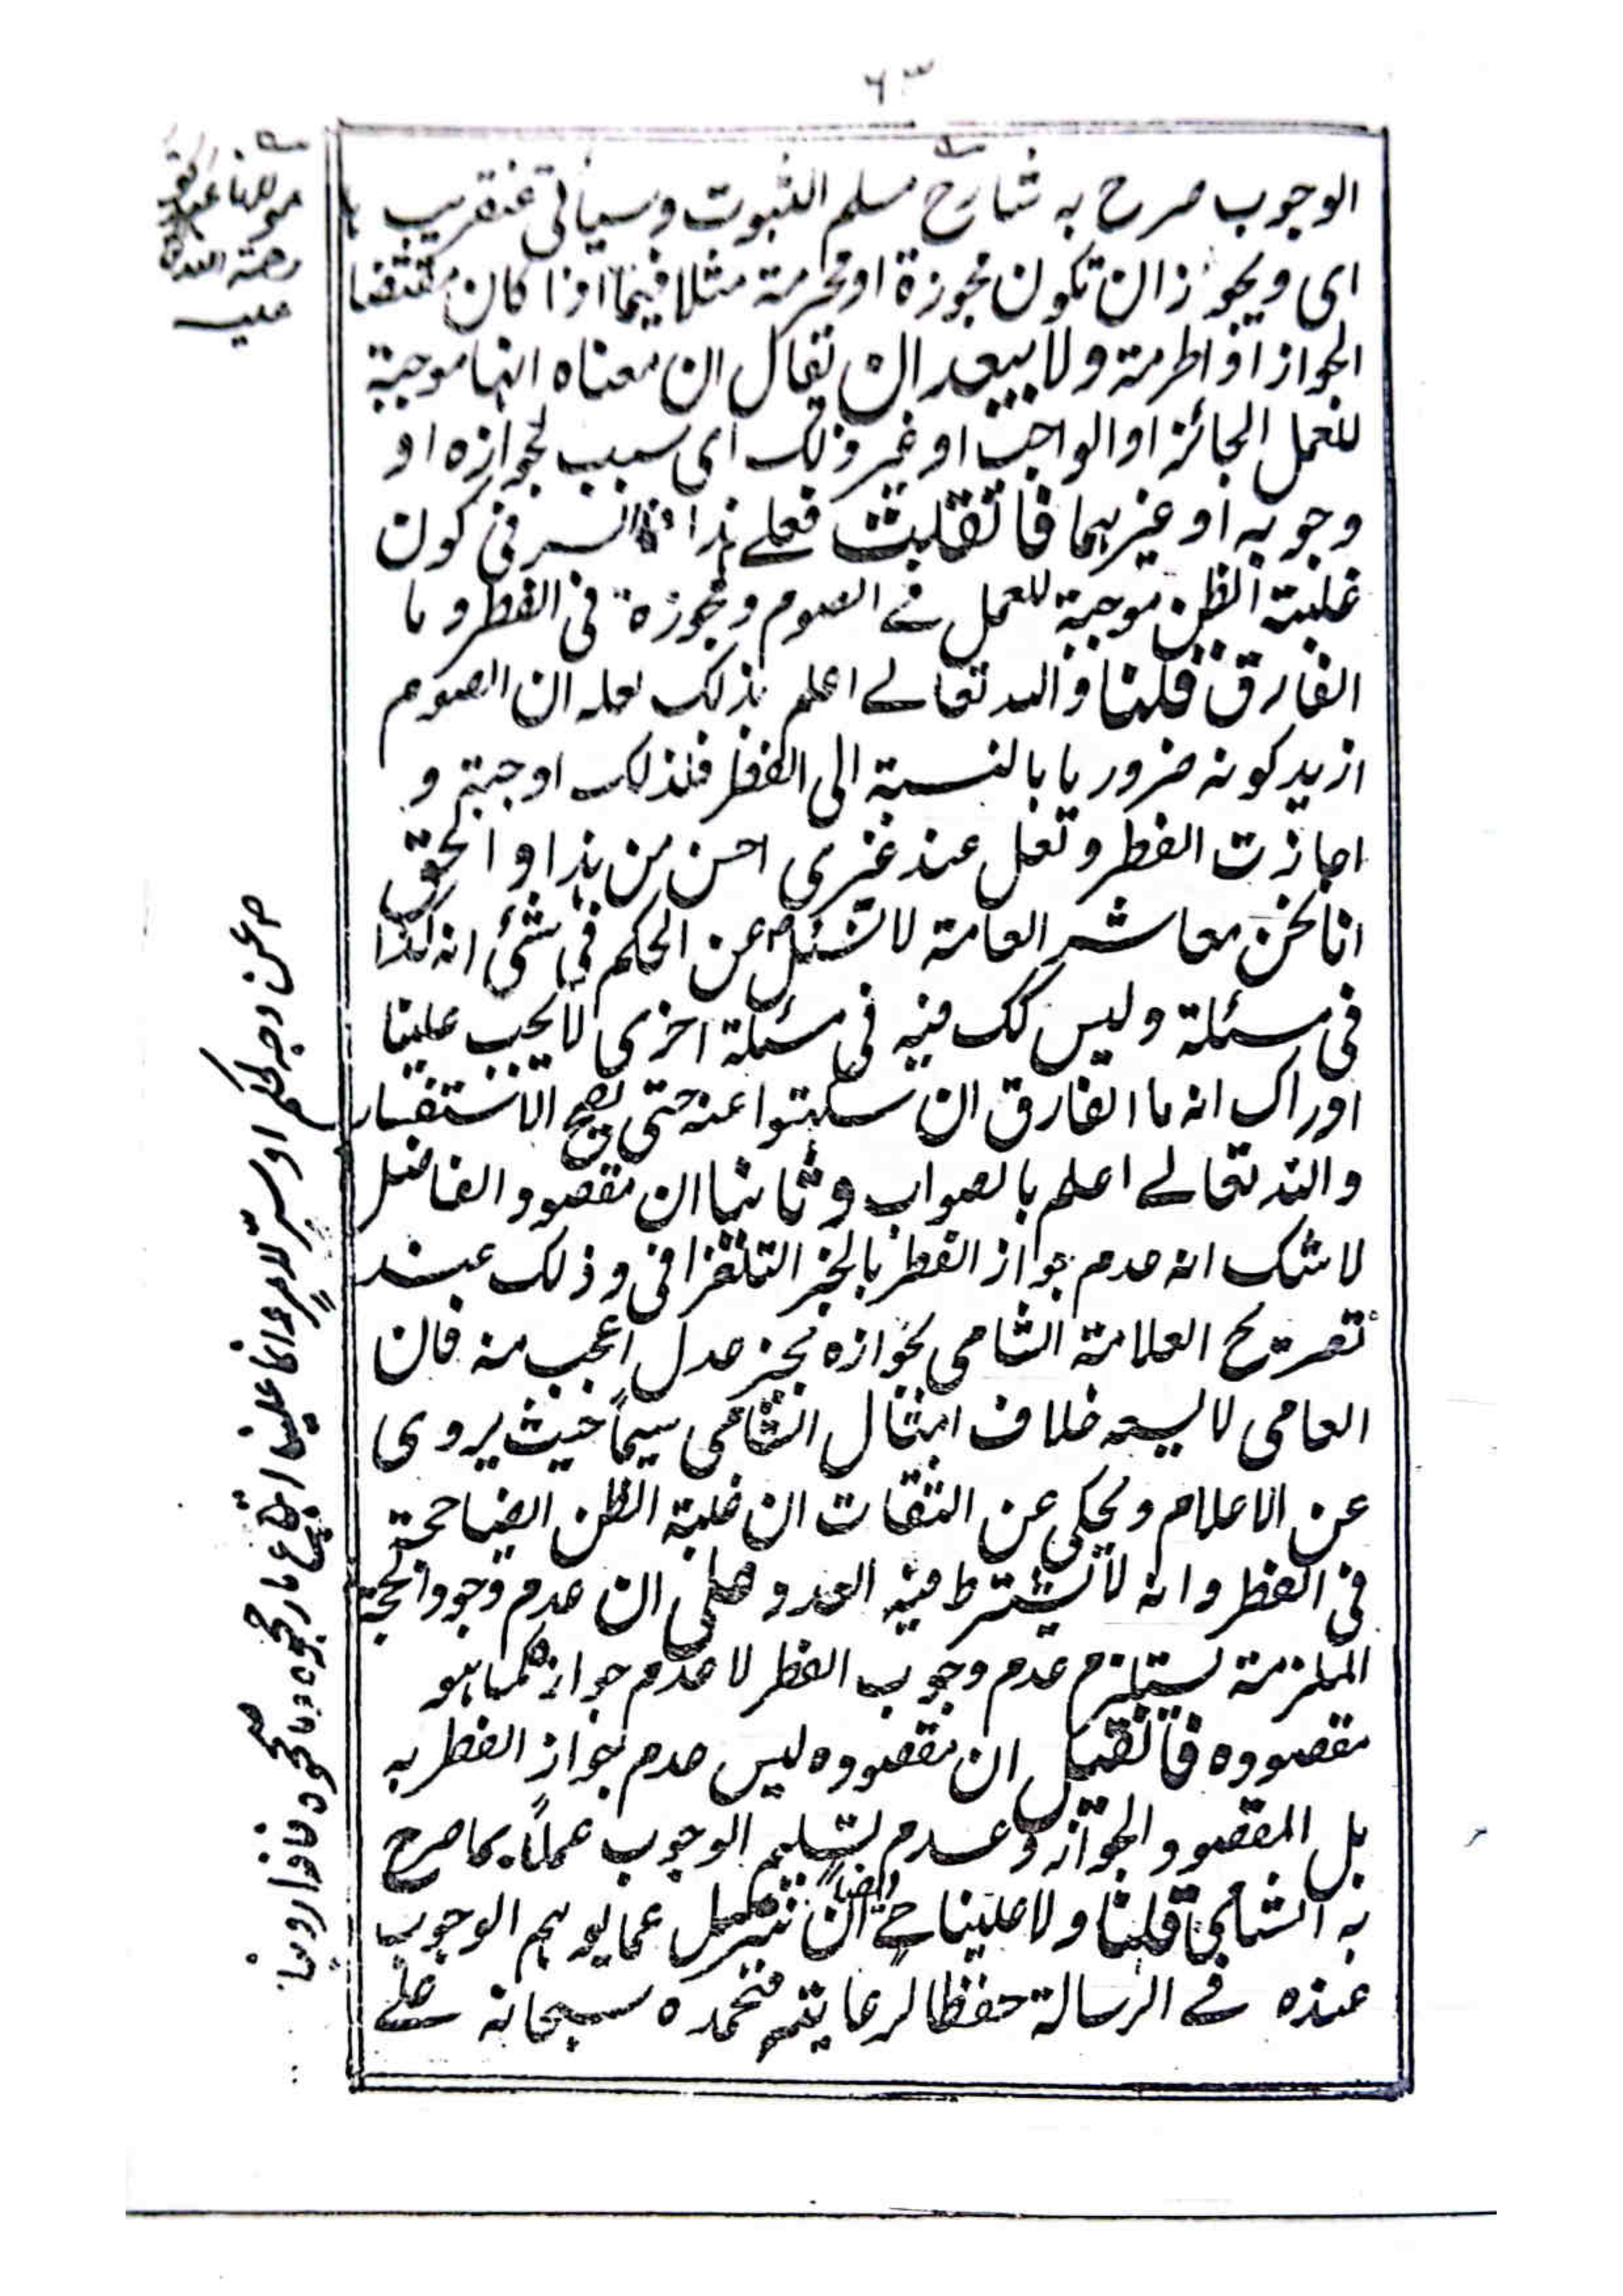 ٦٣
الوجوب صرح به شارح مسلم الثبوت وسیاتی عنقریب
ای ویجوز ان تکون مجوزة او محرمة مثلا فیما اذا کان مقتضا
الجواز او الحرمة ولا یبعد ان یقال ان معناه انها موجبة
للعمل الجائز او الواجب او غیر ذلک ای سبب لجوازه او
وجوبه او غیرهما فان قلت فعلی هذا ما السر فی کون
غلبة الظن موجبة للعمل فی الصوم ومجوزة فی الفطر وما
الفارق قلنا والله تعالے اعلم بذلک لعله ان الصوم
ازید کونه ضروریا بالنسبة الی الفطر فلذلک اوجبتم و
اجازت الفطر ولعل عند غیری احسن من هذا والحق
انا نحن معاشر العامة لا نسئل عن الحکم فی شئ انه کذا
فی مسئلة ولیس کک فیه فی مسئلة اخری لا یجب علینا
ادراک انه ما الفارق ان سکتوا عنه حتی یصح الاستفسار
والله تعالے اعلم بالصواب وثانیا ان مقصود الفاضل
لا شک انه عدم جواز الفطر بالخبر التلغرافی وذلک عند
تصریح العلامة الشامی بجوازه بخبر عدل اعجب منه فان
العامی لا یسعه خلاف امثال الشامی سیما حیث یروی
عن الاعلام ویحکی عن الثقات ان غلبة الظن ایضا حجة
فی الفطر وانه لا یشترط فیه العدد وعلی ان عدم وجود الحجة
الملزمة یستلزم عدم وجوب الفطر لا عدم جوازه کما هو
مقصوده فان قیل ان مقصوده لیس عدم جواز الفطر به
بل المقصود الجواز وعدم تسلیم الوجوب عملا بما صرح
به الشامی قلنا ولا علینا ح ایضا ان نتنزل عما یوهم الوجوب
عنده فے الرسالة حفظا لرعایتهم فنحمده سبحانه علے
مولانا
رحمة الله
علیه
عن وجه الحکم او سره وانما علینا اتباع ما رجحوه وما صححوه